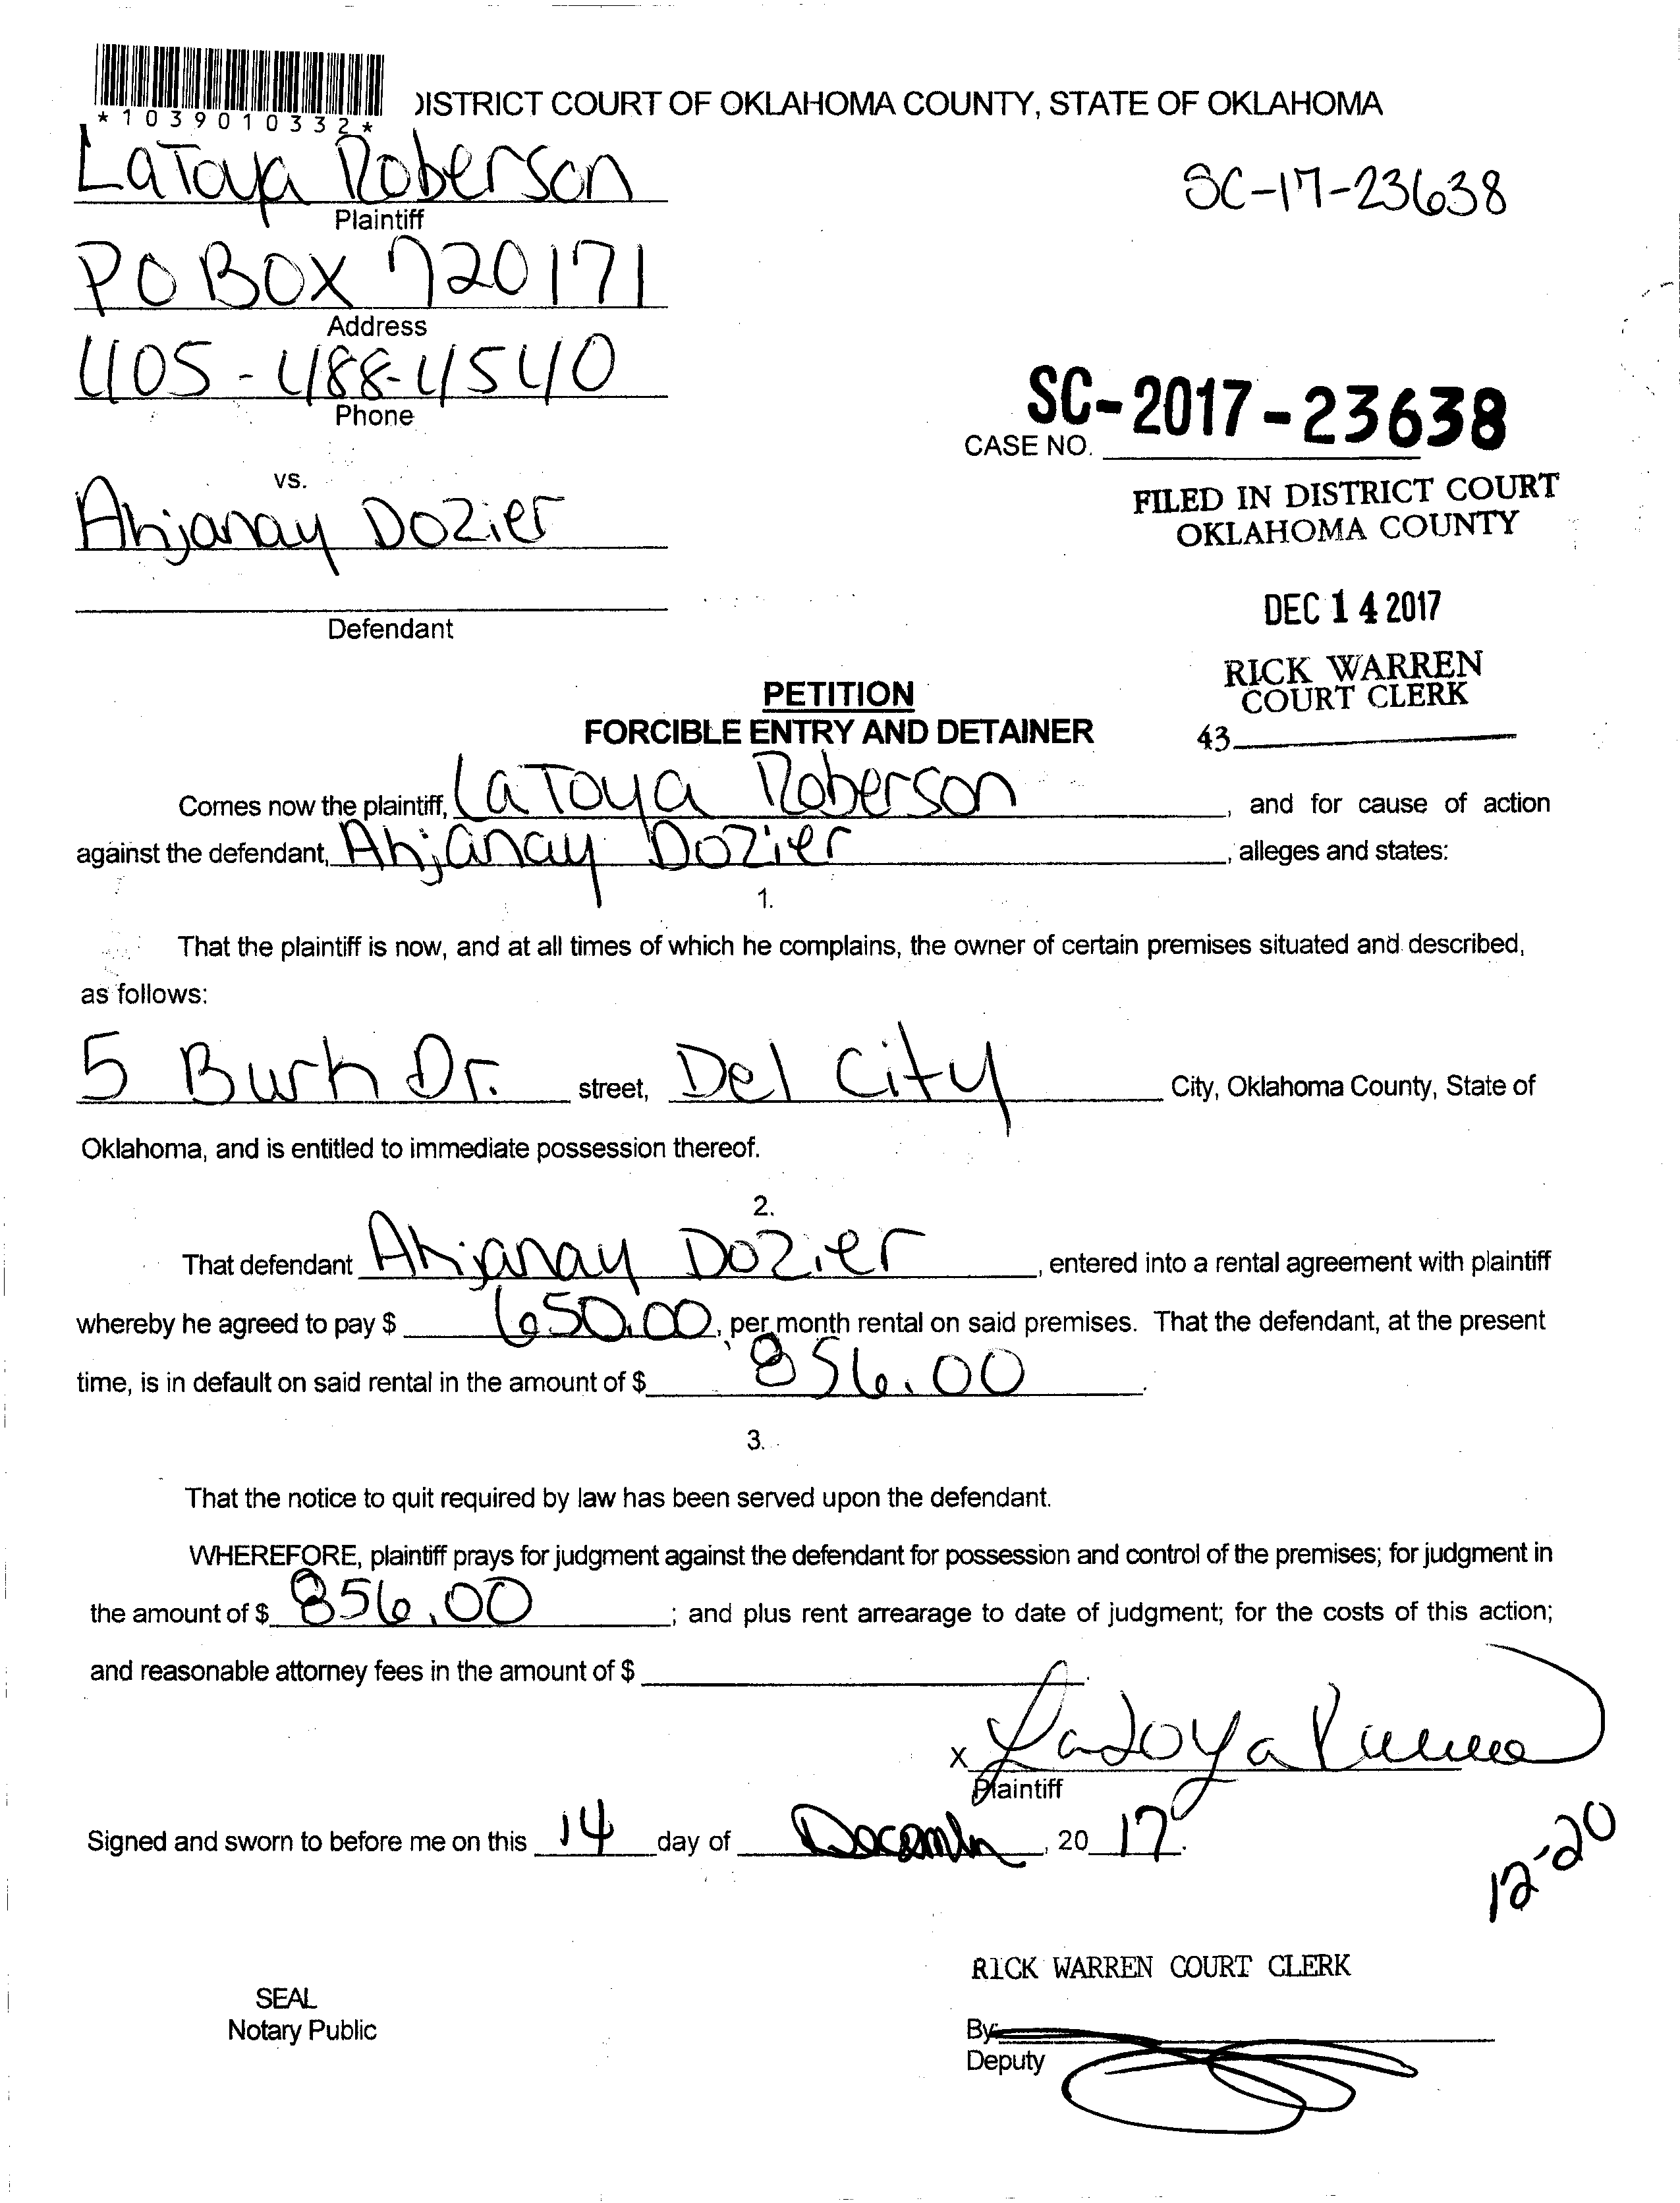 *1039010332*
DISTRICT COURT OF OKLAHOMA COUNTY, STATE OF OKLAHOMA
LaToya Roberson
Plaintiff
SC-17-23638
PO BOX 720171
Address
405-488-4540
Phone
SC-2017-23638
CASE NO.
vs.
FILED IN DISTRICT COURT
OKLAHOMA COUNTY
Ahjanay Dozier
Defendant
DEC 14 2017
RICK WARREN
COURT CLERK
43
PETITION
FORCIBLE ENTRY AND DETAINER
Comes now the plaintiff, LaToya Roberson, and for cause of action
against the defendant, Ahjanay Dozier, alleges and states:
1.
That the plaintiff is now, and at all times of which he complains, the owner of certain premises situated and described,
as follows:
5 Burh Dr. street, Del City City, Oklahoma County, State of
Oklahoma, and is entitled to immediate possession thereof.
2.
That defendant Ahjanay Dozier, entered into a rental agreement with plaintiff
whereby he agreed to pay $ 650.00, per month rental on said premises. That the defendant, at the present
time, is in default on said rental in the amount of $ 856.00.
3.
That the notice to quit required by law has been served upon the defendant.
WHEREFORE, plaintiff prays for judgment against the defendant for possession and control of the premises; for judgment in
the amount of $ 856.00; and plus rent arrearage to date of judgment; for the costs of this action;
and reasonable attorney fees in the amount of $
x LaToya
Plaintiff
Signed and sworn to before me on this 14 day of December, 20 17.
12-20
RICK WARREN COURT CLERK
SEAL
Notary Public
By
Deputy